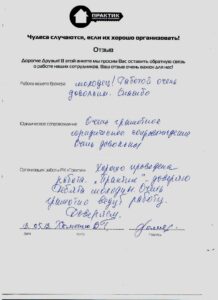 ПРАКТИК
Чудеса случаются, если их хорошо организовать!
Отзыв
Дорогие друзья! В этой анкете мы просим Вас оставить обратную связь
о работе наших сотрудников. Ваш отзыв очень важен для нас!
Работа вашего брокера
молодец! Работой очень
довольны. Спасибо
Юридическое сопровождение
очень грамотное
юридическое сопровождение
очень довольны!
Организация работы РК «Практик»
Хорошо проведена
работа. "Практик" - доверяю
Ребята молодцы. Очень
грамотно ведут работу.
Доверяю.